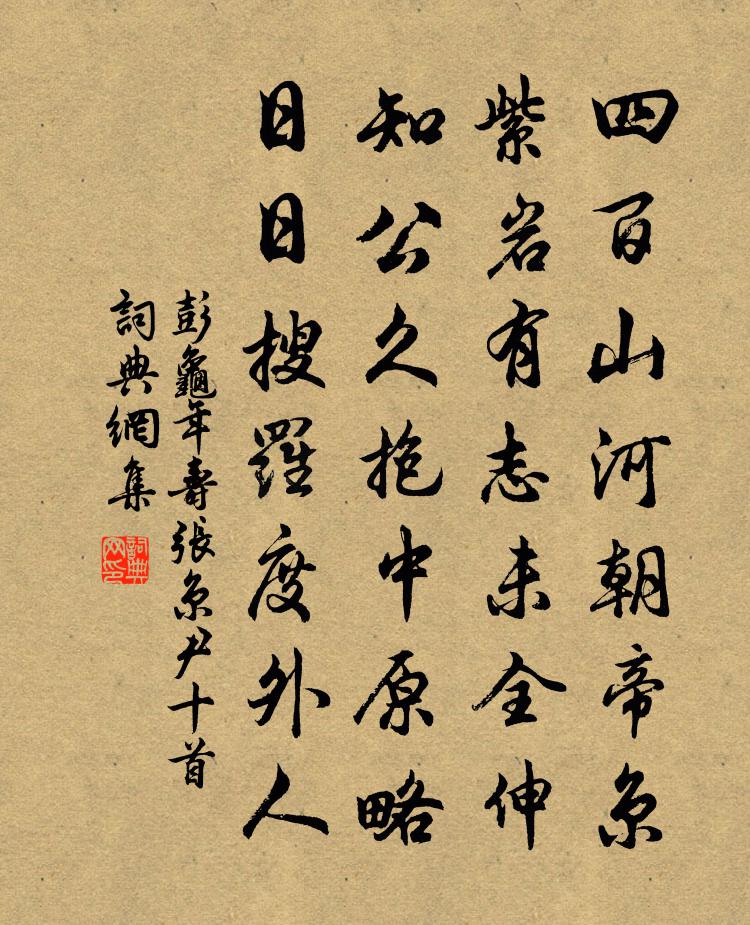 四百山河朝帝京
紫岩有志未全伸
知公久抱中原略
日日搜羅度外人
彭龜年壽張京尹十首
詞典網集
詞典
网印